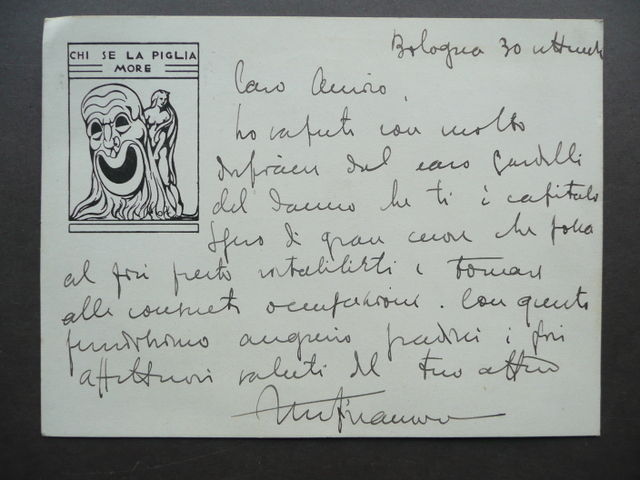 CHI SE LA PIGLIA
MORE
Bologna 30 settembre
Caro Amico,
ho saputo con molto
dispiacere dal caro Gardelli
del danno che ti è capitato
Spero di gran cuore che possa
al più presto ristabilirti e tornare
alle consuete occupazioni. Con questo
augurio gradisci i più
affettuosi saluti del tuo aff.mo